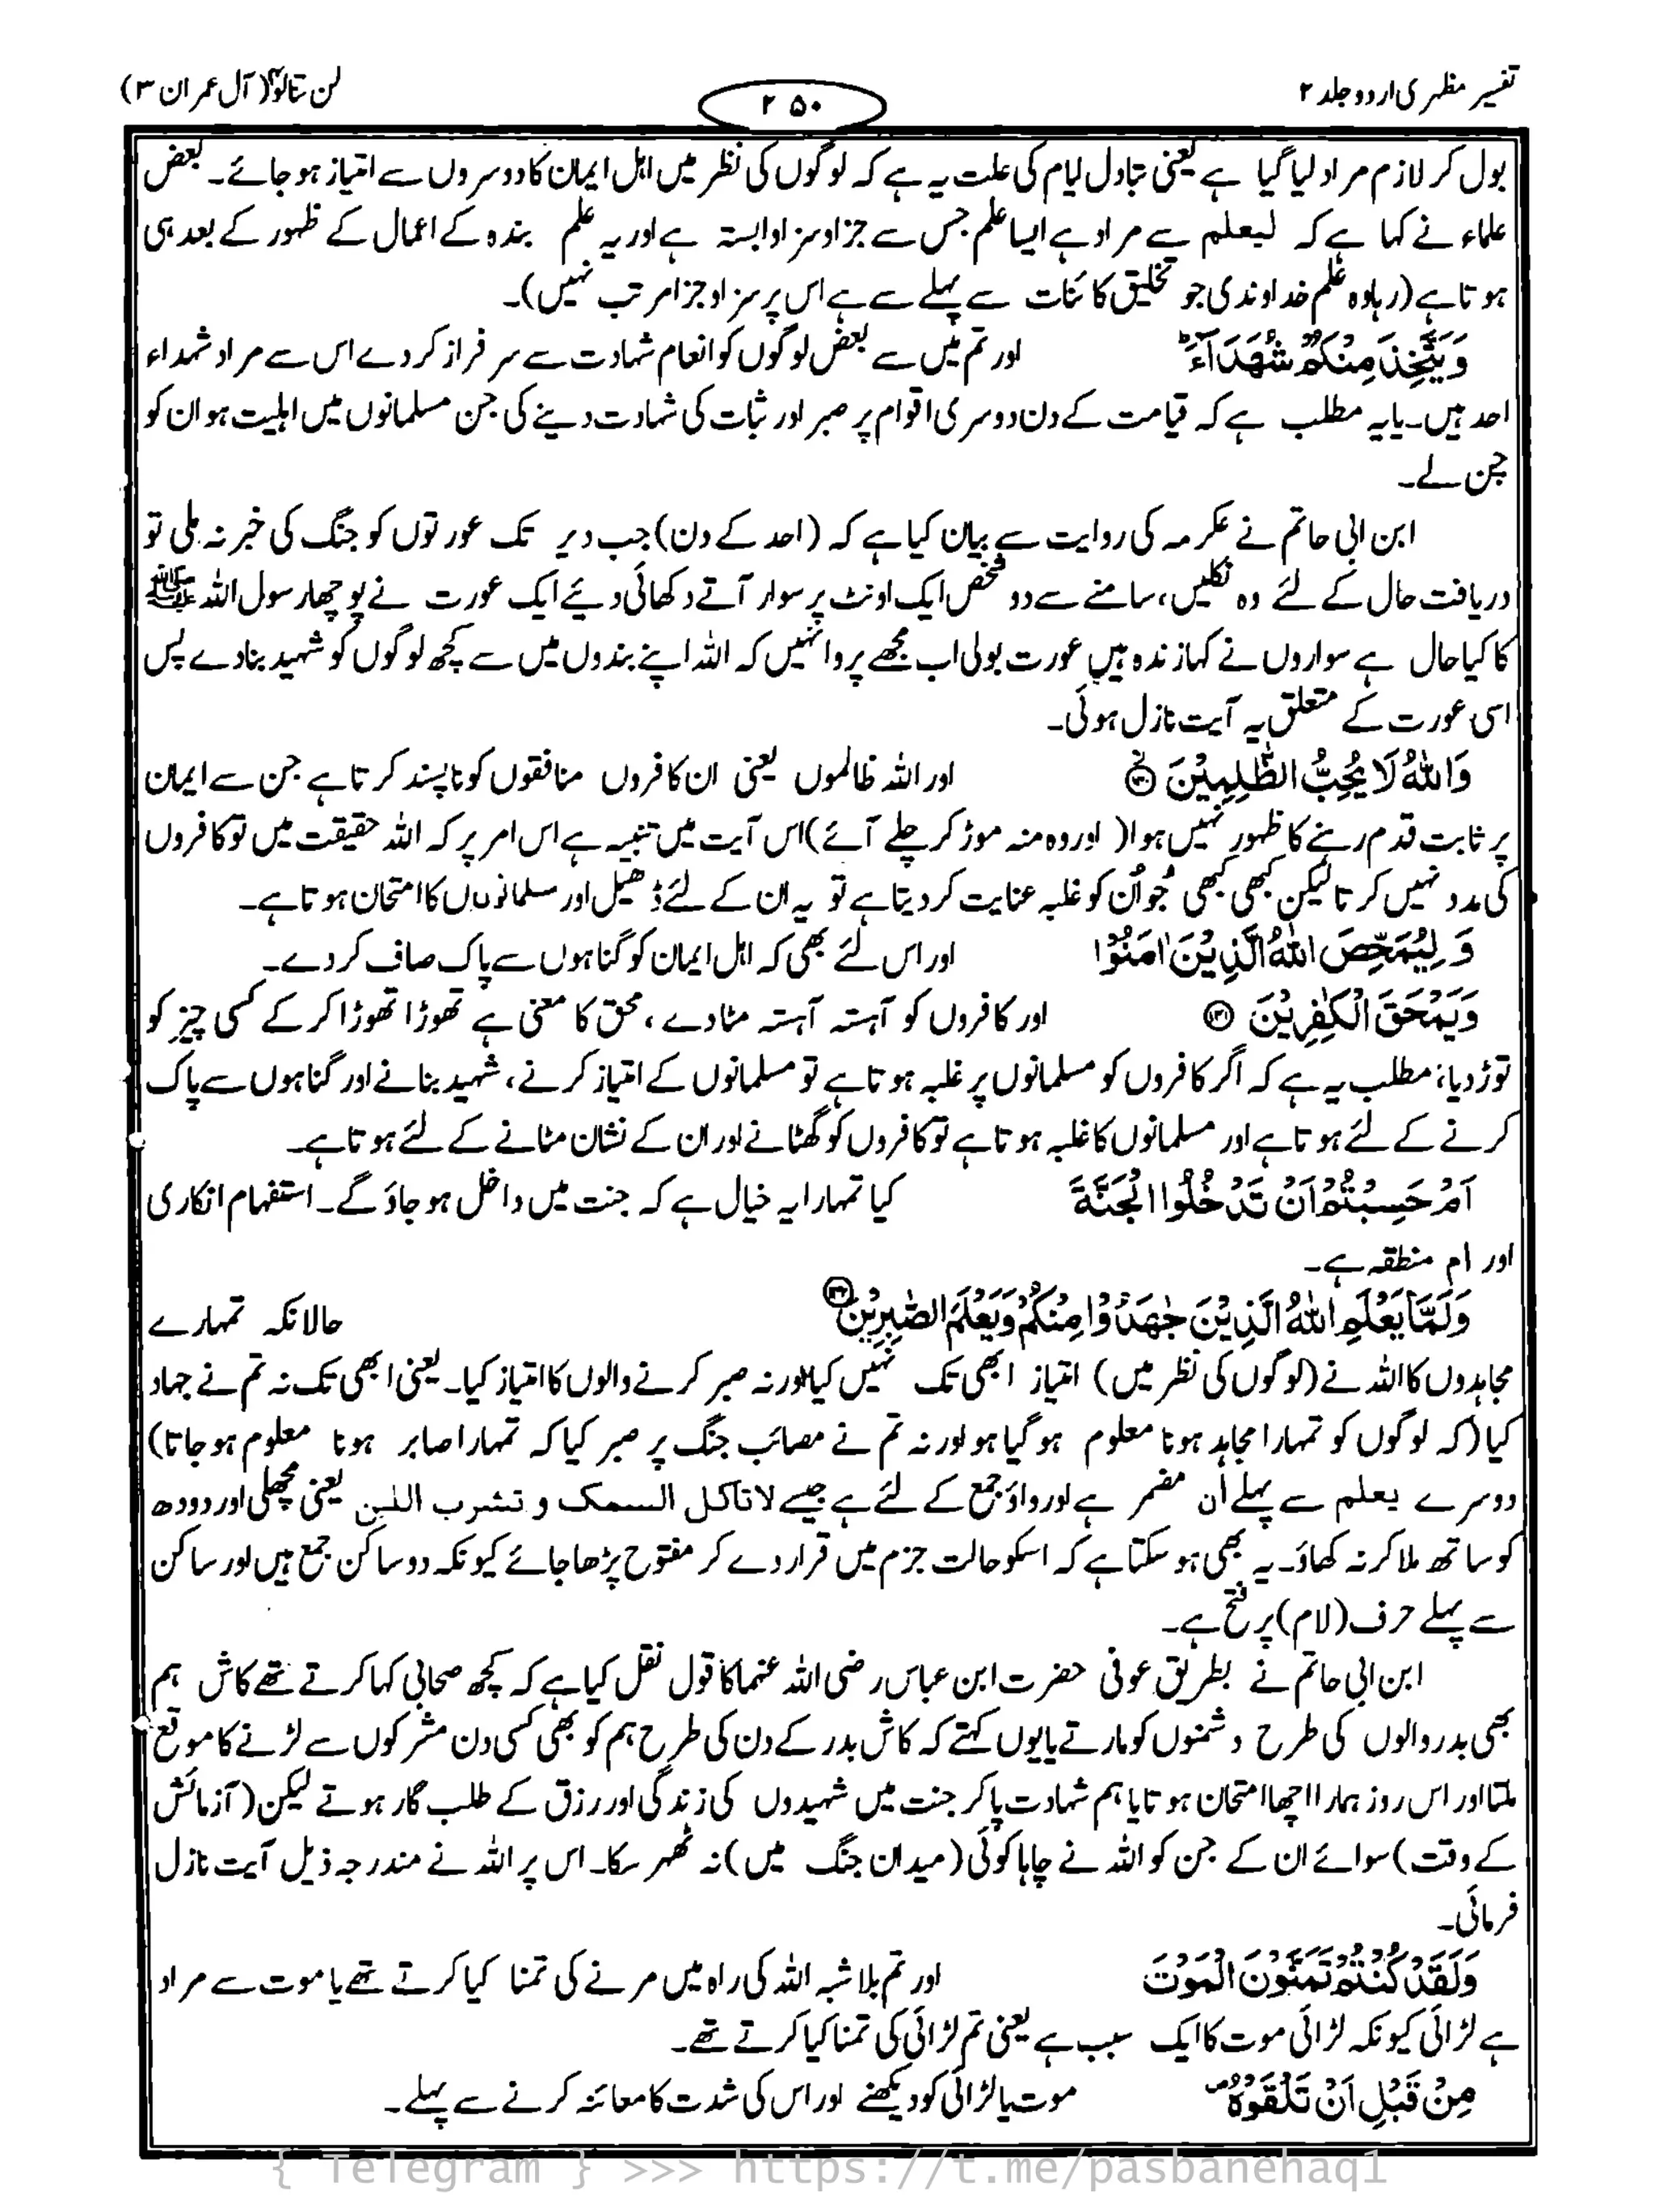 تفسیر مظہری اردو جلد ۲
۲۵۰
لن تنالوا (آل عمران ۳)
بول کر لازم مراد لیا گیا ہے یعنی تداول ایام کی علت یہ ہے کہ لوگوں کی نظر میں اہل ایمان کا دوسروں سے امتیاز ہو جائے۔ بعض
علماء نے کہا ہے کہ لیعلم سے مراد ہے ایسا علم جس سے جزا و سزا وابستہ ہے اور یہ علم بندہ کے اعمال کے ظہور کے بعد ہی
ہوتا ہے (رہا وہ علم خداوندی جو تخلیق کائنات سے پہلے سے ہے اس پر سزا و جزا مرتب نہیں)۔
وَيَتَّخِذَ مِنْكُمْ شُهَدَآءَ ؕ اور تم میں سے بعض لوگوں کو انعام شہادت سے سرفراز کر دے اس سے مراد شہداء
احد ہیں۔ یا یہ مطلب ہے کہ قیامت کے دن دوسری اقوام پر صبر اور ثبات کی شہادت دینے کی جن مسلمانوں میں اہلیت ہو ان کو
چن لے۔
ابن ابی حاتم نے عکرمہ کی روایت سے بیان کیا ہے کہ (احد کے دن) جب دیر تک عورتوں کو جنگ کی خبر نہ ملی تو
دریافت حال کے لئے وہ نکلیں، سامنے سے دو شخص ایک اونٹ پر سوار آتے دکھائی دیئے ایک عورت نے پوچھا رسول اللہ ﷺ
کا کیا حال ہے سواروں نے کہا زندہ ہیں عورت بولی اب مجھے پروا نہیں کہ اللہ اپنے بندوں میں سے کچھ لوگوں کو شہید بنا دے پس
اسی عورت کے متعلق یہ آیت نازل ہوئی۔
وَاللّٰهُ لَا يُحِبُّ الظّٰلِمِيْنَ ۝۱۴۰ اور اللہ ظالموں یعنی ان کافروں منافقوں کو ناپسند کرتا ہے جن سے ایمان
پر ثابت قدم رہنے کا ظہور نہیں ہوا (اور وہ منہ موڑ کر چلے آئے) اس آیت میں تنبیہ ہے اس امر پر کہ اللہ حقیقت میں تو کافروں
کی مدد نہیں کرتا لیکن کبھی کبھی جو اُن کو غلبہ عنایت کر دیتا ہے تو یہ ان کے لئے ڈھیل اور مسلمانوں کا امتحان ہوتا ہے۔
وَلِيُمَحِّصَ اللّٰهُ الَّذِيْنَ اٰمَنُوْا اور اس لئے بھی کہ اہل ایمان کو گناہوں سے پاک صاف کر دے۔
وَيَمْحَقَ الْكٰفِرِيْنَ ۝۱۴۱ اور کافروں کو آہستہ آہستہ مٹا دے، محق کا معنی ہے تھوڑا تھوڑا کر کے کسی چیز کو
توڑ دینا؛ مطلب یہ ہے کہ اگر کافروں کو مسلمانوں پر غلبہ ہوتا ہے تو مسلمانوں کے امتیاز کرنے، شہید بنانے اور گناہوں سے پاک
کرنے کے لئے ہوتا ہے اور مسلمانوں کا غلبہ ہوتا ہے تو کافروں کو گھٹانے اور ان کے نشان مٹانے کے لئے ہوتا ہے۔
اَمْ حَسِبْتُمْ اَنْ تَدْخُلُوا الْجَنَّةَ کیا تمہارا یہ خیال ہے کہ جنت میں داخل ہو جاؤ گے۔ استفہام انکاری
اور ام منطقہ ہے۔
وَلَمَّا يَعْلَمِ اللّٰهُ الَّذِيْنَ جٰهَدُوْا مِنْكُمْ وَيَعْلَمَ الصّٰبِرِيْنَ ۝۱۴۲ حالانکہ تمہارے
مجاہدوں کا اللہ نے (لوگوں کی نظر میں) امتیاز ابھی تک نہیں کیا اور نہ صبر کرنے والوں کا امتیاز کیا۔ یعنی ابھی تک نہ تم نے جہاد
کیا (کہ لوگوں کو تمہارا مجاہد ہونا معلوم ہو گیا ہو اور نہ تم نے مصائب جنگ پر صبر کیا کہ تمہارا صابر ہونا معلوم ہو جاتا)
دوسرے یعلم سے پہلے اَن مضمر ہے اور واؤ جمع کے لئے ہے جیسے لا تاکل السمک و تشرب اللبن یعنی مچھلی اور دودھ
کو ساتھ ملا کر نہ کھاؤ۔ یہ بھی ہو سکتا ہے کہ اسکو حالت جزم میں قرار دے کر مفتوح پڑھا جائے کیونکہ دو ساکن جمع ہیں اور ساکن
سے پہلے حرف (لام) پر فتح ہے۔
ابن ابی حاتم نے بطریق عوفی حضرت ابن عباس رضی اللہ عنہما کا قول نقل کیا ہے کہ کچھ صحابی کہا کرتے تھے کاش ہم
بھی بدر والوں کی طرح دشمنوں کو مارتے یا یوں کہتے کہ کاش بدر کے دن کی طرح ہم کو بھی کسی دن مشرکوں سے لڑنے کا موقع
ملتا اور اس روز ہمارا اچھا امتحان ہوتا یا ہم شہادت پا کر جنت میں شہیدوں کی زندگی اور رزق کے طلب گار ہوتے لیکن (آزمائش
کے وقت) سوائے ان کے جن کو اللہ نے چاہا کوئی (میدان جنگ میں) نہ ٹھہر سکا۔ اس پر اللہ نے مندرجہ ذیل آیت نازل
فرمائی۔
وَلَقَدْ كُنْتُمْ تَمَنَّوْنَ الْمَوْتَ اور تم بلا شبہ اللہ کی راہ میں مرنے کی تمنا کیا کرتے تھے یا موت سے مراد
ہے لڑائی کیونکہ لڑائی موت کا ایک سبب ہے یعنی تم لڑائی کی تمنا کیا کرتے تھے۔
مِنْ قَبْلِ اَنْ تَلْقَوْهُ ۪ موت یا لڑائی کو دیکھنے اور اس کی شدت کا معائنہ کرنے سے پہلے۔
{ Telegram } >>> https://t.me/pasbanehaq1